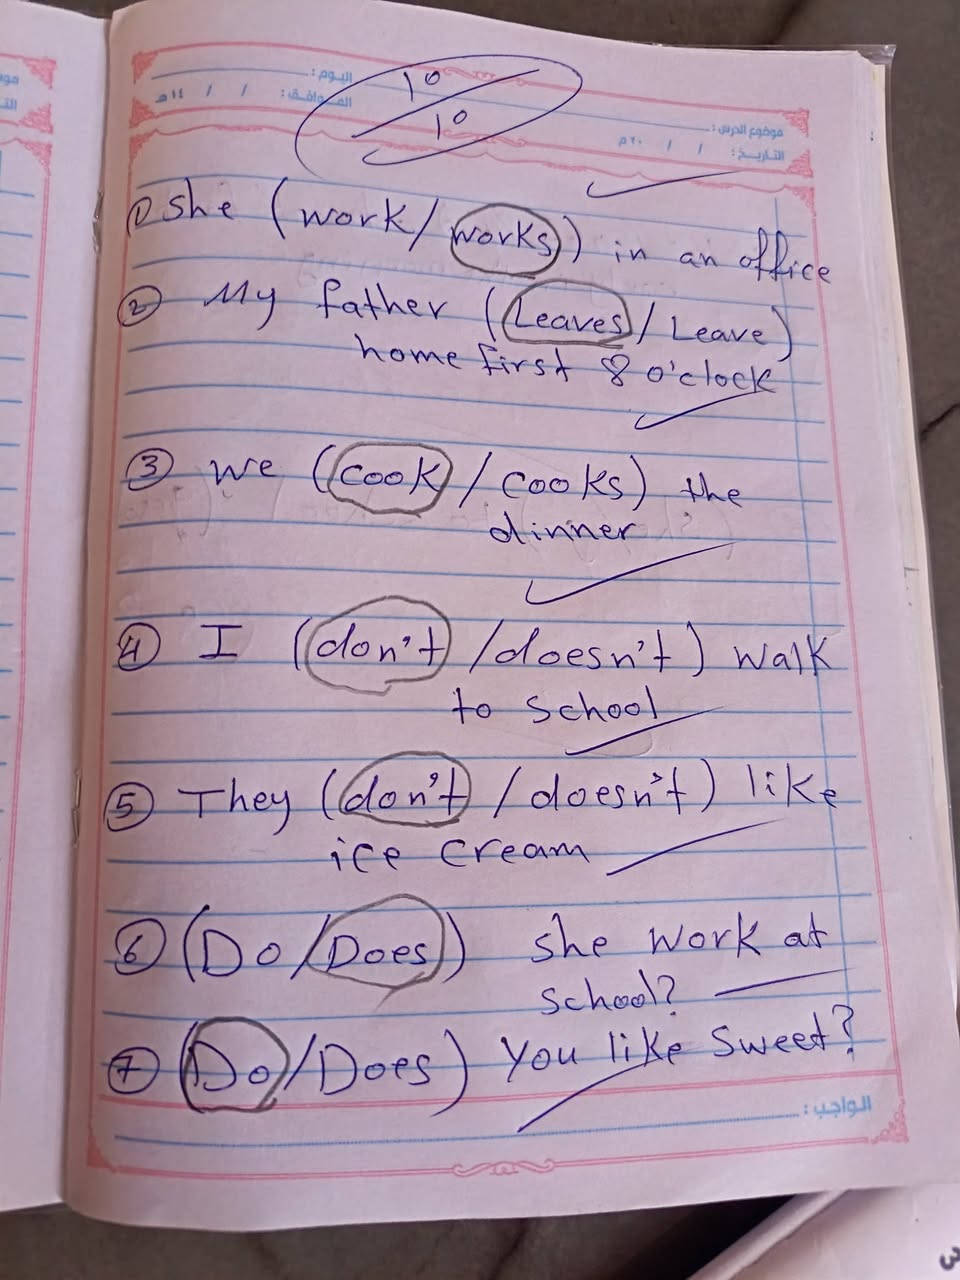 اليوم :
الموافق : / / ١٤هـ
موضوع الدرس :
التاريخ : / / ٢٠م
10
10
1 She (work/works) in an office
2 My father (Leaves/Leave)
home first 8 o'clock
3 We (cook/cooks) the
dinner
4 I (don't/doesn't) walk
to school
5 They (don't/doesn't) like
ice cream
6 (Do/Does) she work at
school?
7 (Do/Does) You like Sweet?
الواجب :
3